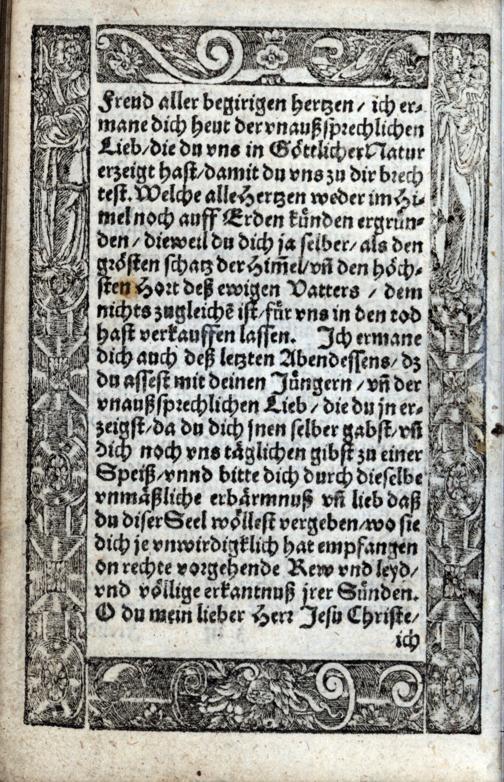 Freud aller begirigen hertzen / ich er⸗
mane dich heut der vnaußsprechlichen
Lieb / die du vns in Göttlicher Natur
erzeigt hast / damit du vns zu dir brech
test. Welche alle Hertzen weder im Hi⸗
mel noch auff Erden künden ergrün⸗
den / dieweil du dich ja selber / als den
grösten schatz der Him̃el / vñ den höch⸗
sten Hort deß ewigen Vatters / dem
nichts zugleichẽ ist / für vns in den tod
hast verkauffen lassen. Ich ermane
dich auch deß letzten Abendessens / dz
du assest mit deinen Jüngern / vñ der
vnaußsprechlichen Lieb / die du jn er⸗
zeigst / da du dich jnen selber gabst / vñ
dich noch vns täglichen gibst zu einer
Speiß / vnnd bitte dich durch dieselbe
vnmäßliche erbärmnuß vñ lieb daß
du diser Seel wöllest vergeben / wo sie
dich je vnwirdigklich hat empfangen
on rechte vorgehende Rew vnd leyd /
vnd völlige erkantnuß jrer Sünden.
O du mein lieber Herr Jesu Christe /
ich